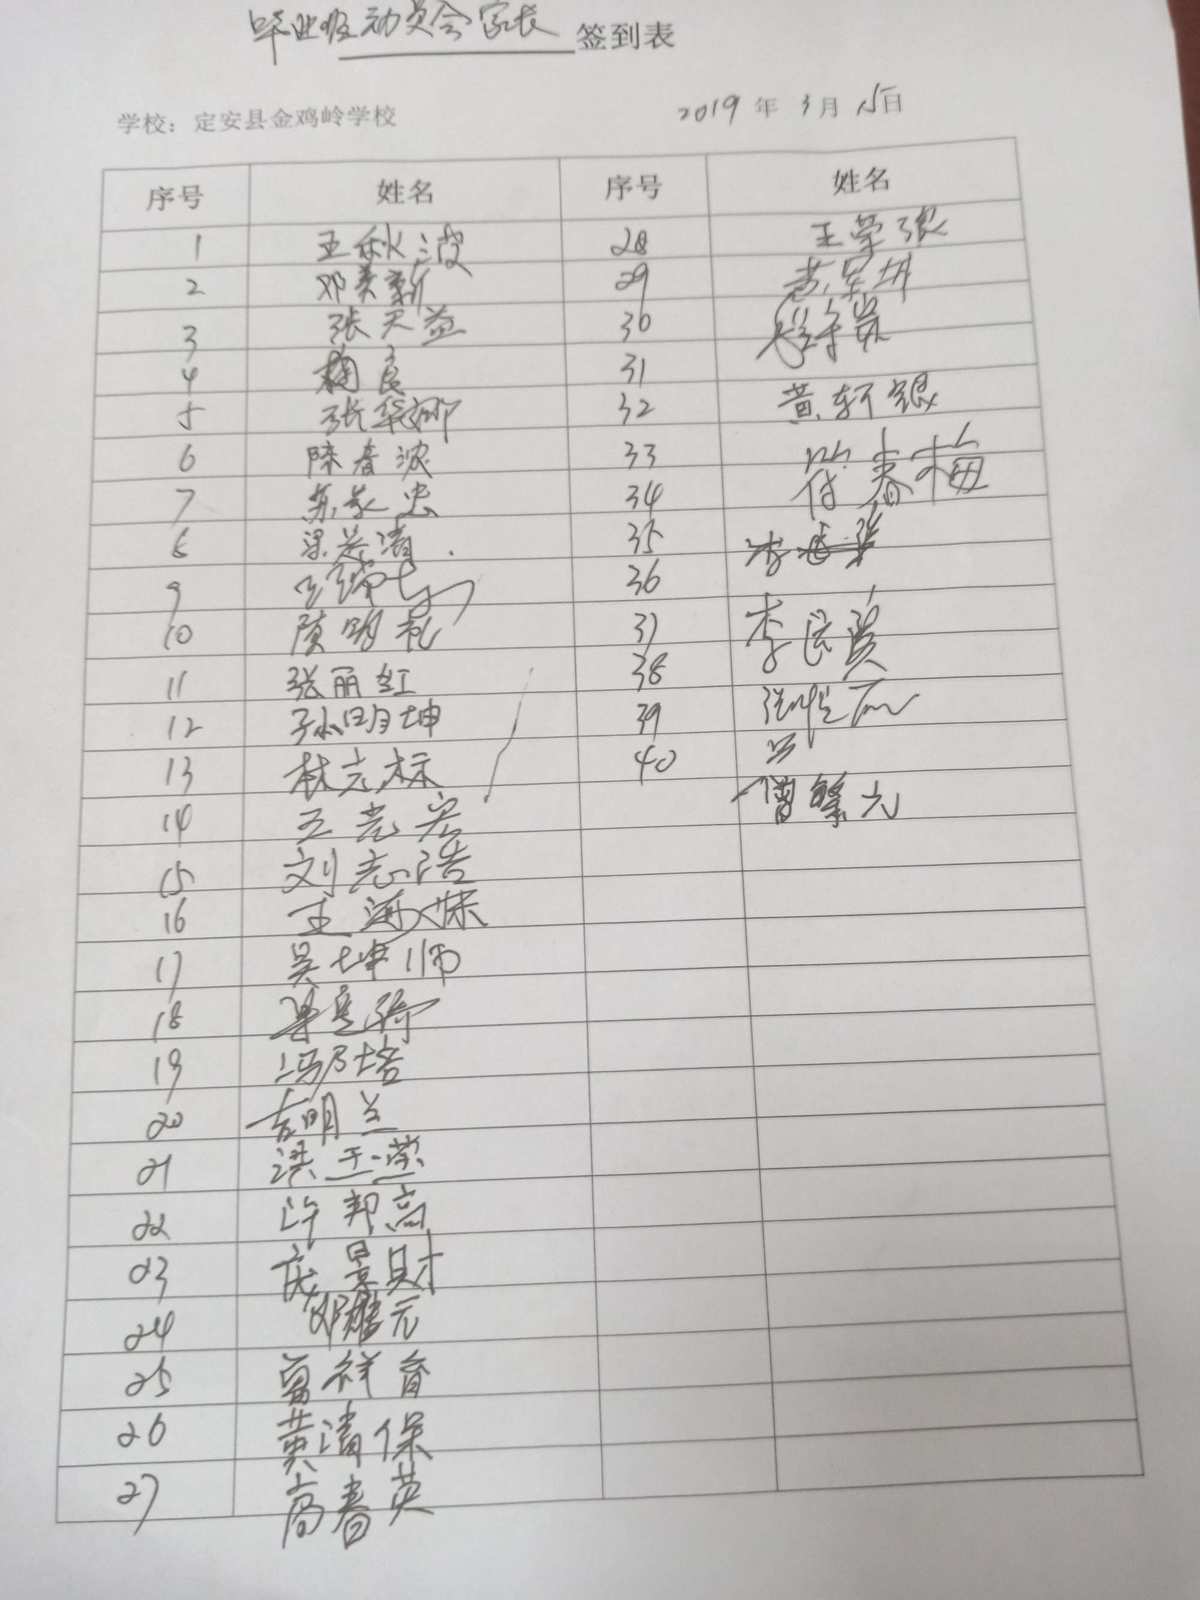 毕业班动员会家长 签到表
学校：定安县金鸡岭学校 2019 年 3 月 15 日
序号 姓名 序号 姓名
1 王秋波 28 王荣银
2 邓美新 29 黄军
3 张天益 30
4 梅良 31
5 张华娜 32 黄轩银
6 陈春波 33 符春梅
7 苏家忠 34
8 梁清 35 李
9 王瑞 36
10 陈明礼 37 李良贤
11 张丽红 38
12 孙明坤 39 张
13 林元标 40
14 王光 曾繁元
15 刘志浩
16 王海妹
17 吴坤师
18
19 冯乃培
20 吉明兰
21 洪玉莹
22 许邦高
23 庞景财
24 邓雄元
25 曾祥育
26 黄清保
27 高春英